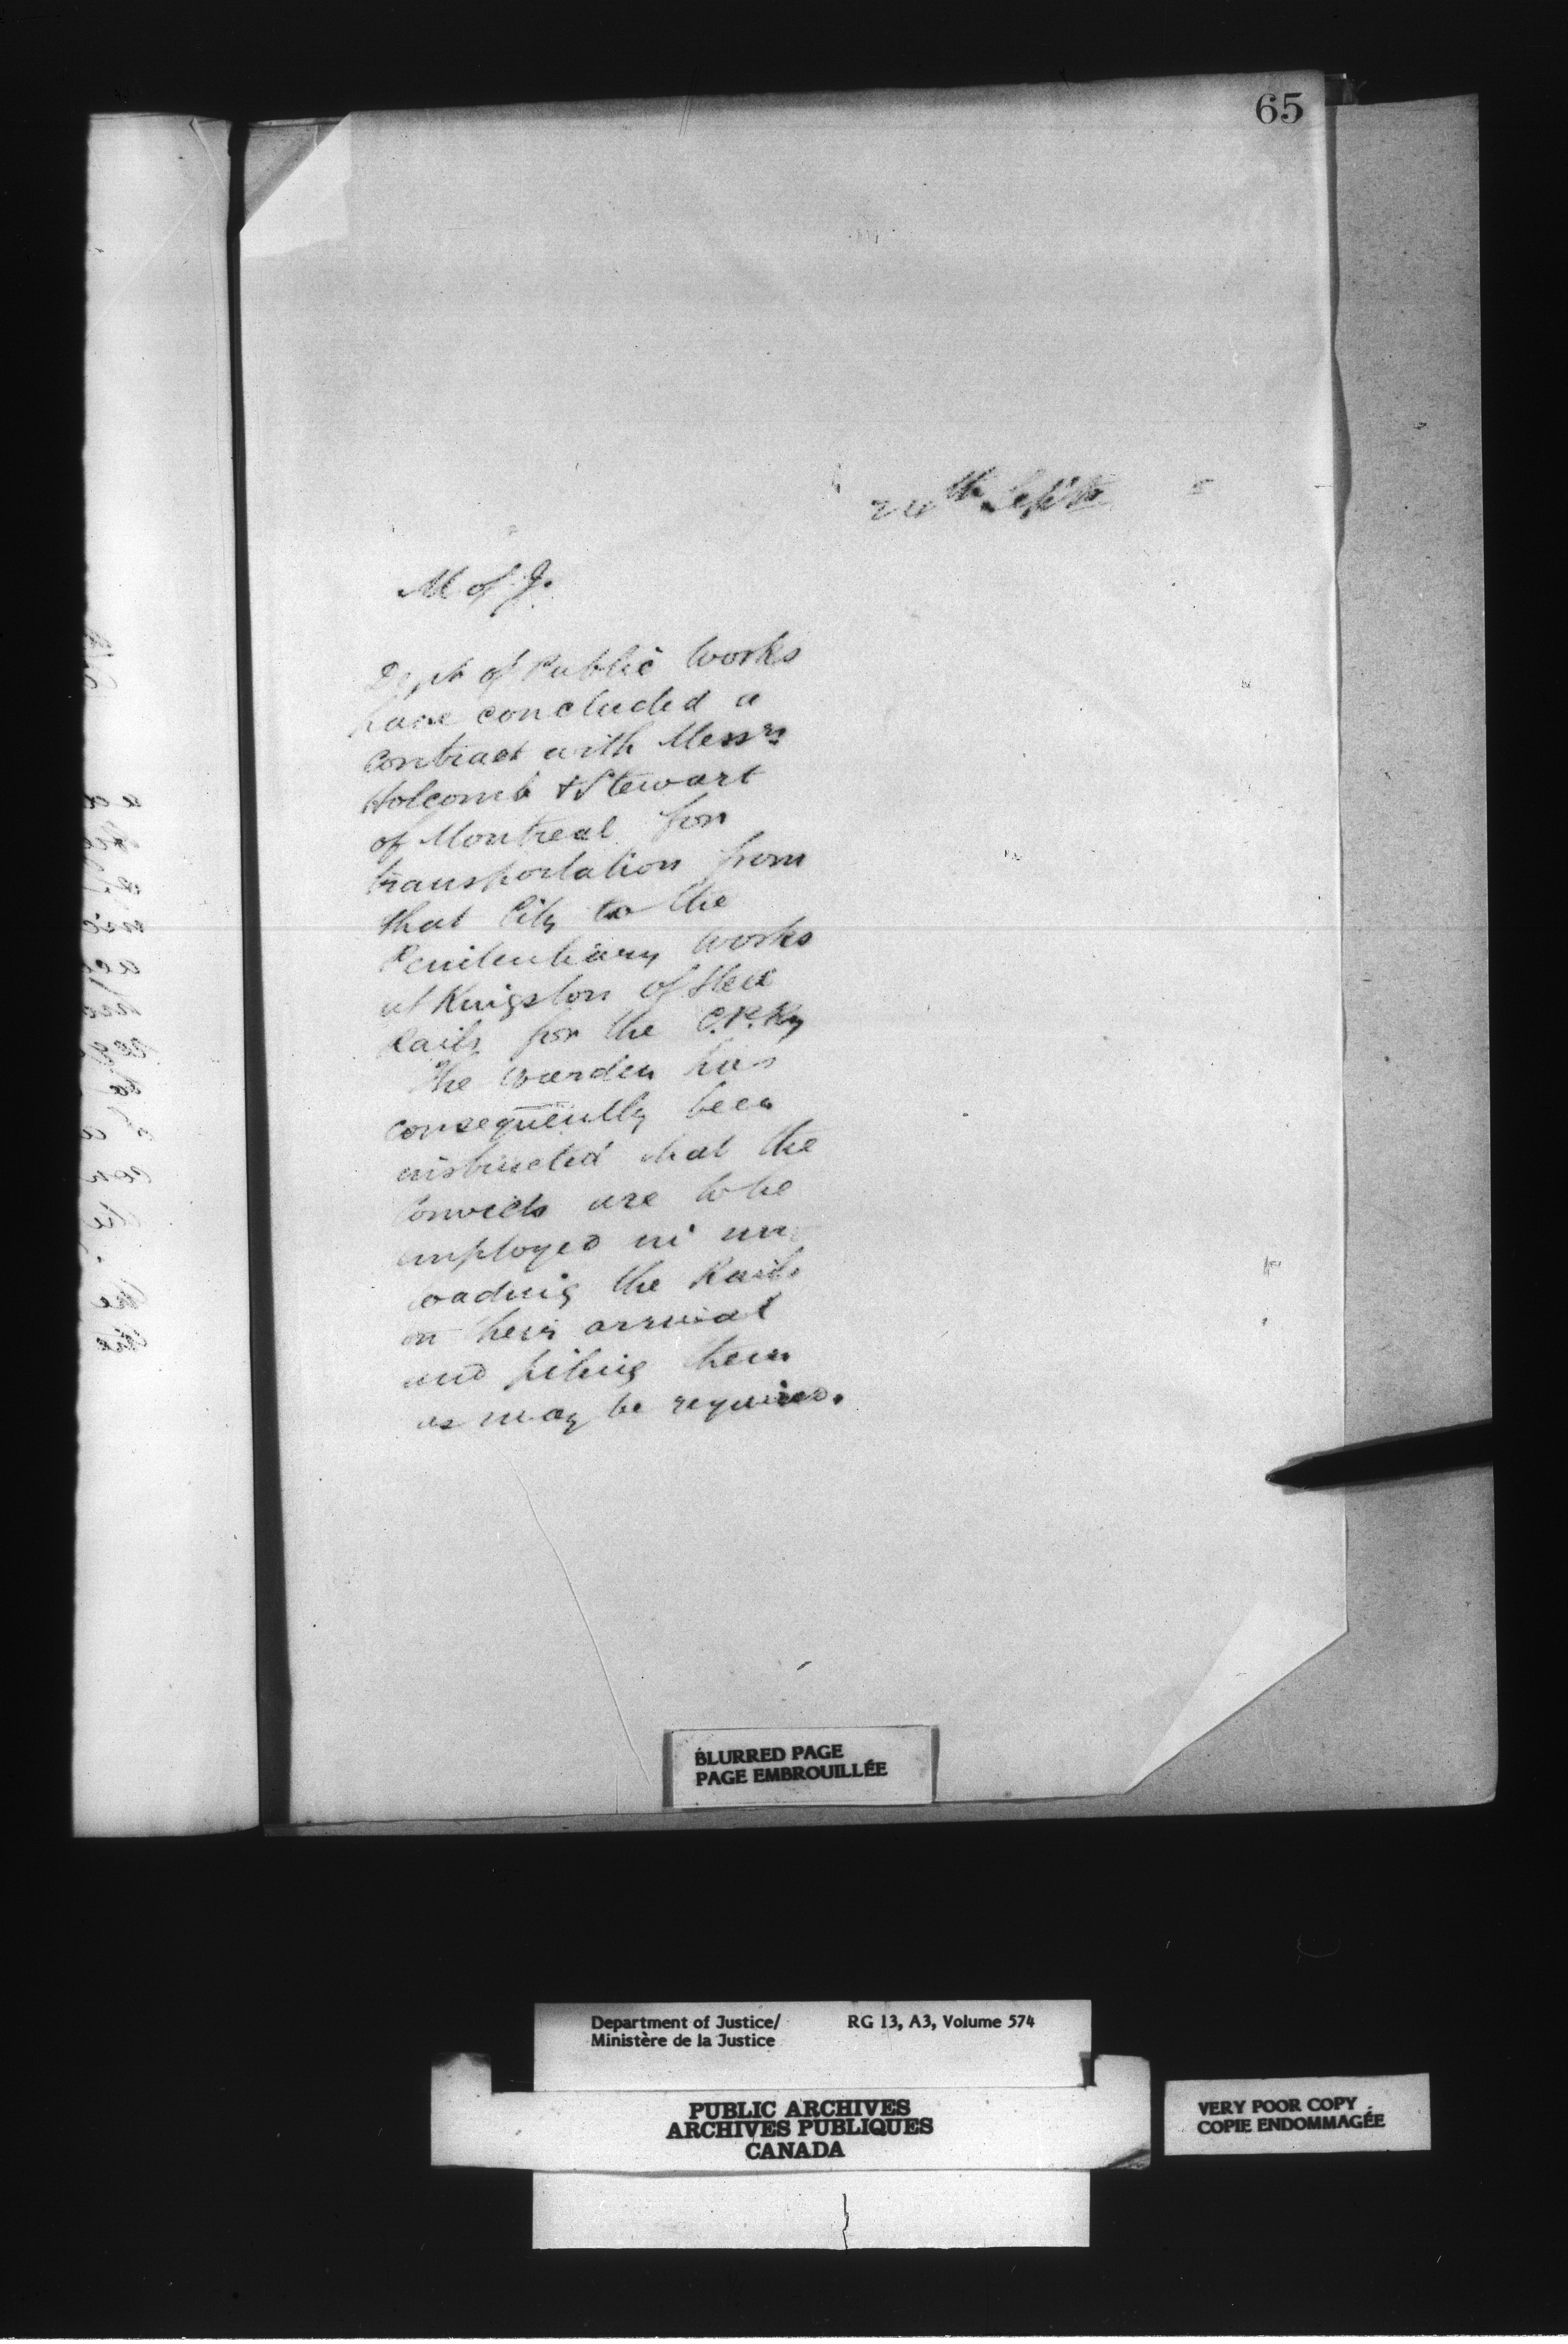 65
24th Septr
M of J.
Dept of Public Works
have concluded a
contract with Messrs
Holcomb & Stewart
of Montreal for
transportation from
that City to the
Penitentiary Works
at Kingston of Steel
Rails for the C.P.Ry
The Warden has
consequently been
instructed that the
Convicts are to be
employed in un
loading the Rails
on their arrival
and piling them
as may be required.
BLURRED PAGE
PAGE EMBROUILLÉE
Department of Justice/ RG 13, A3, Volume 574
Ministère de la Justice
PUBLIC ARCHIVES
ARCHIVES PUBLIQUES
CANADA
VERY POOR COPY
COPIE ENDOMMAGÉE